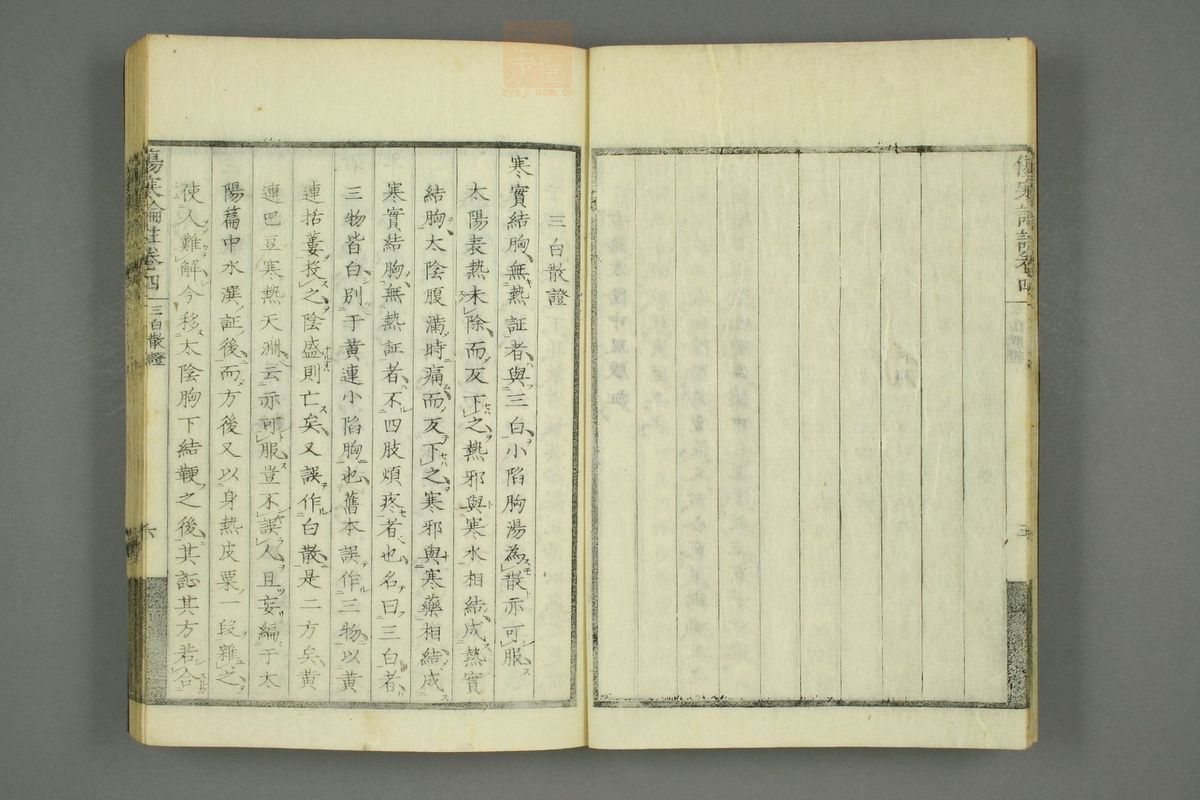 三白散證
寒實結胸無熱証者與三白小陷胸湯為散亦可服
太陽表熱未除而反下之熱邪與寒水相結成熱實
結胸太陰腹滿時痛而反下之寒邪與寒藥相結成
寒實結胸無熱証者不四肢煩疼者也名曰三白者
三物皆白別于黃連小陷胸也舊本誤作三物以黃
連括蔞投之陰盛則亡矣又誤作白散是二方矣黃
連巴豆寒熱天淵云亦可服豈不誤人且妄編于太
陽篇中水潠証後而方後又以身熱皮粟一段雜之
使人難解今移太陰胸下結鞕之後其証其方若合
傷寒論註卷四
三白散證
六
五
zysj.com.cn